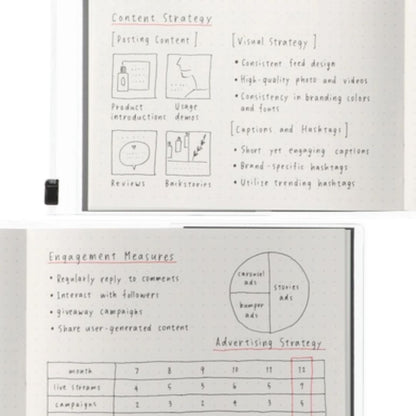 Content Strategy
[Posting Content]
Product introductions
Usage demos
Reviews
Backstories
[Visual Strategy]
• Consistent feed design
• High-quality photo and videos
• Consistency in branding colors
and fonts
[Captions and Hashtags]
• Short yet engaging captions
• Brand-specific hashtags
• Utilize trending hashtags
Engagement Measures
• Regularly reply to comments
• Interact with followers
• giveaway campaigns
• Share user-generated content
carousel
ads
stories
ads
bumper
ads
Advertising Strategy
month 7 8 9 10 11 12
live streams 4 5 3 6 5 7
campaigns 2 3 2 4 3 5